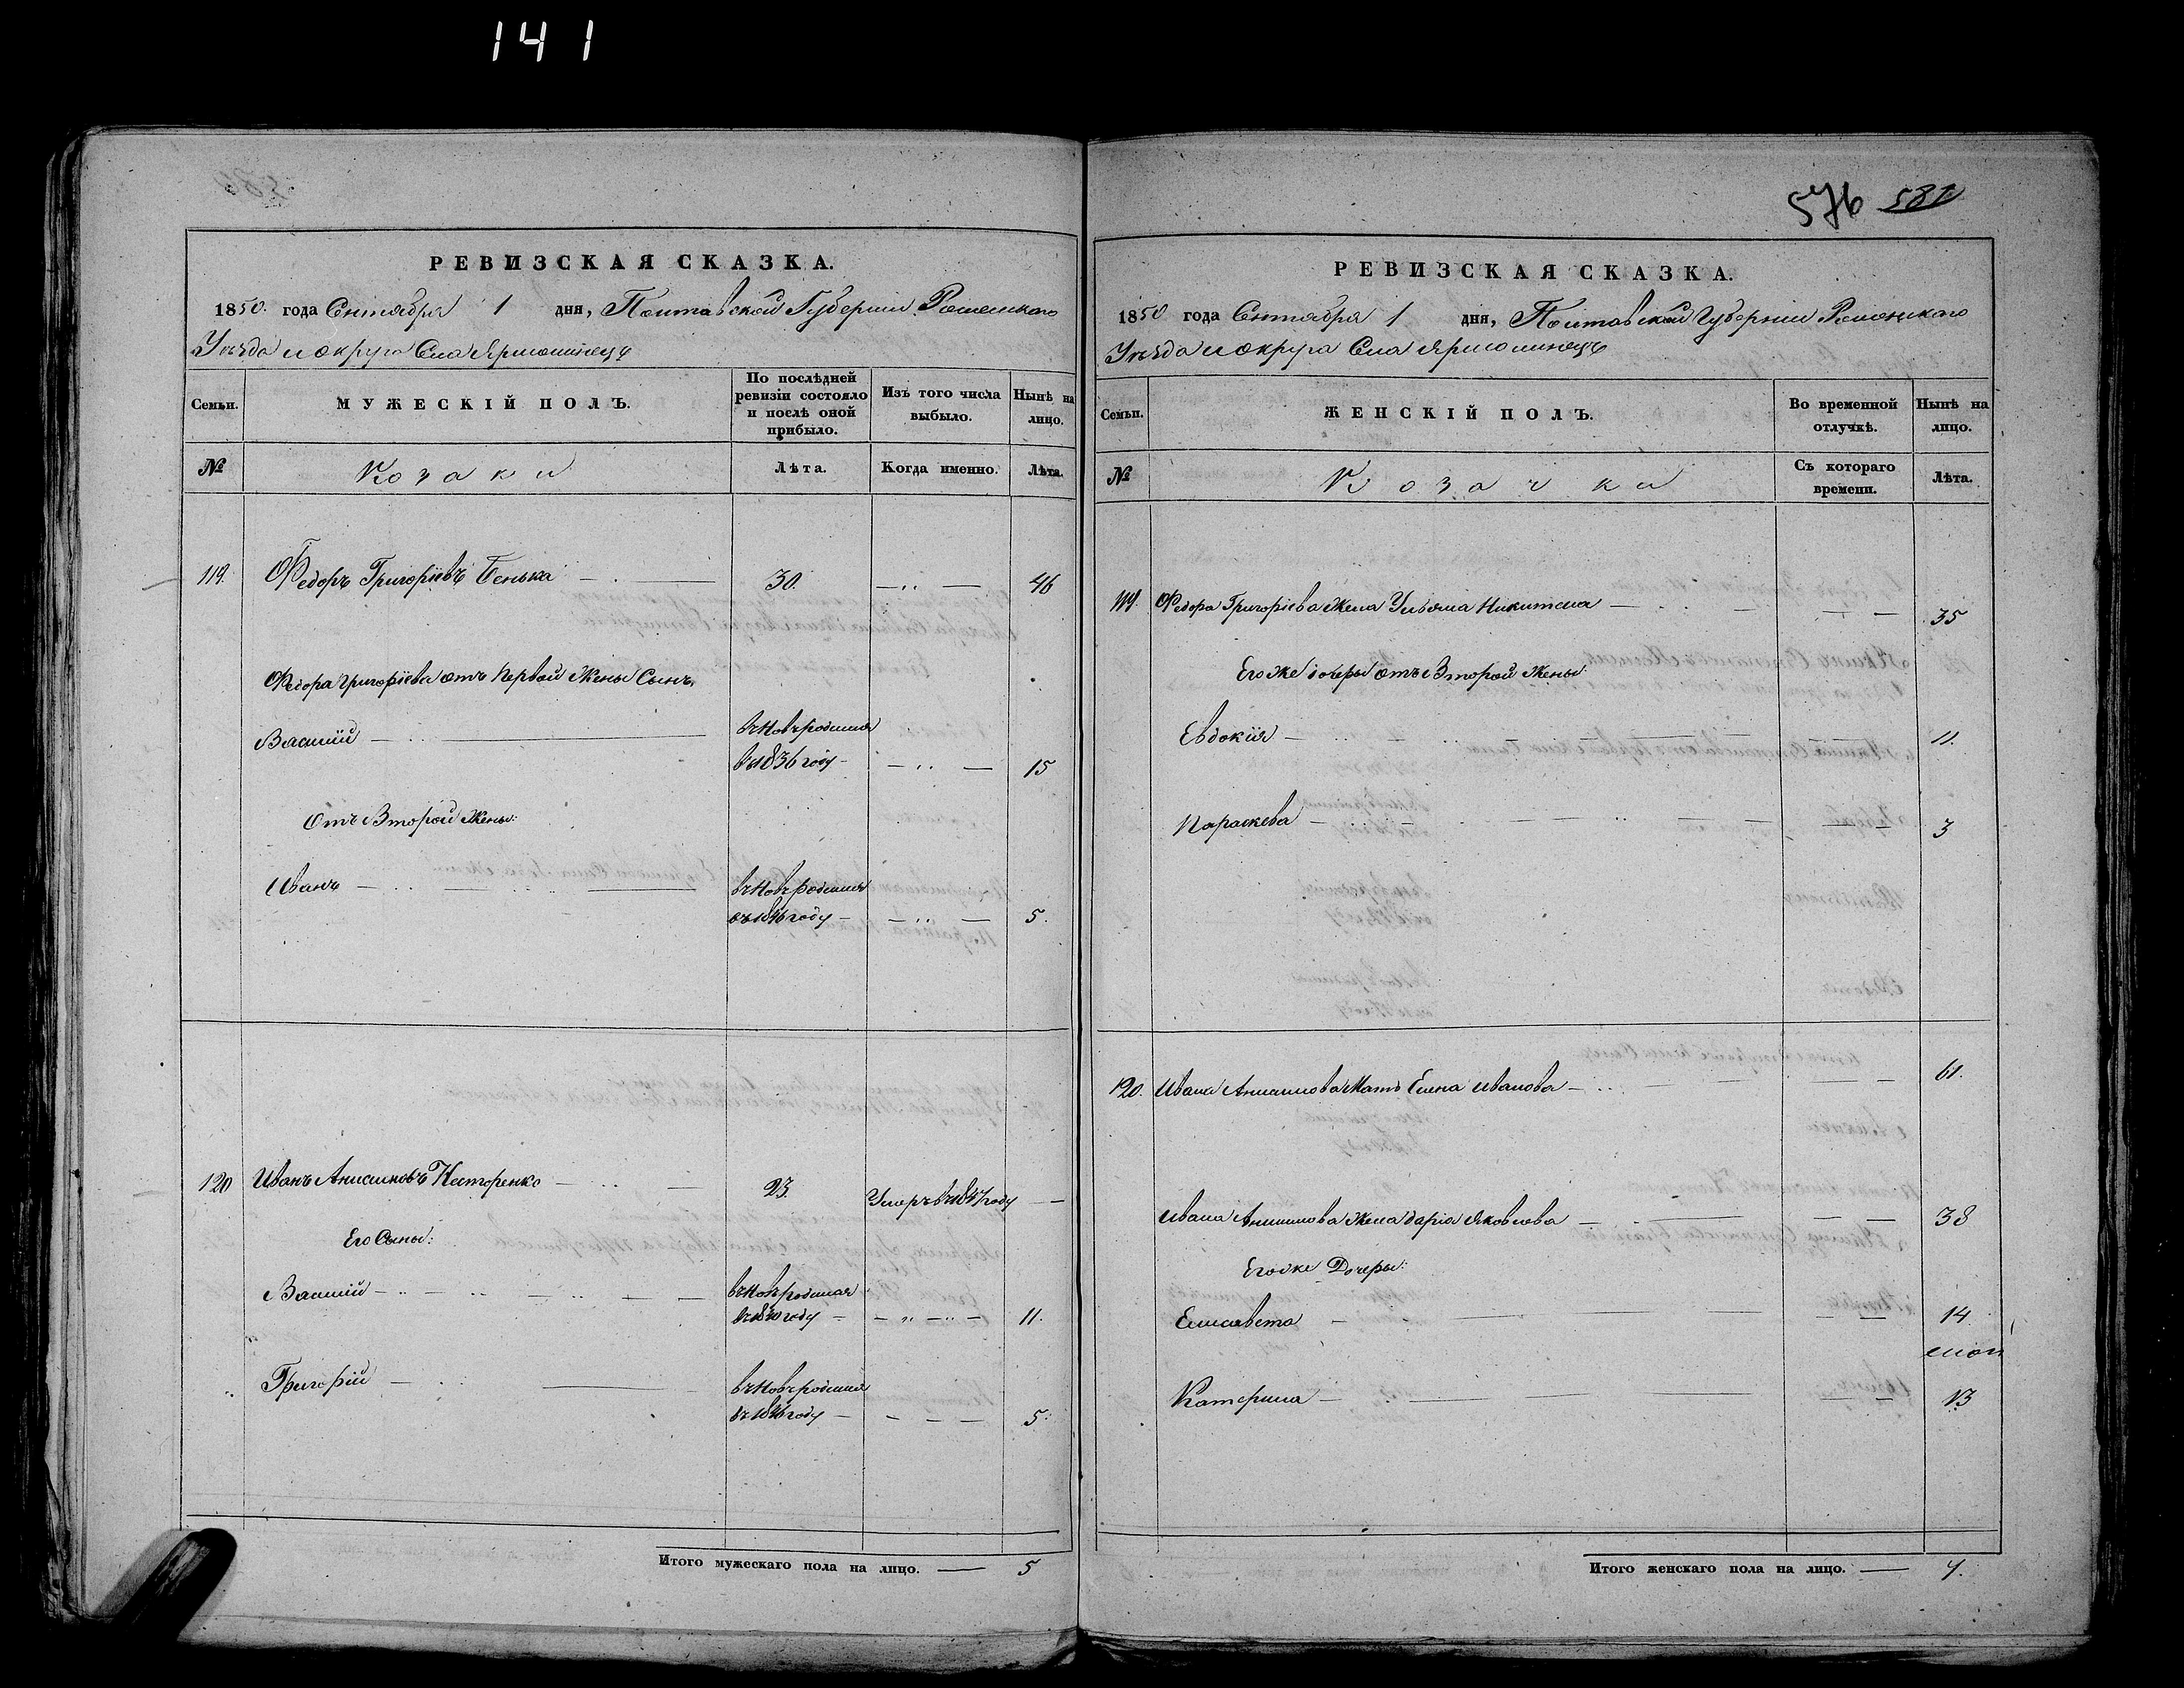 141
РЕВИЗСКАЯ СКАЗКА.
1850. года Сентября 1 дня, Полтавской Губернии Роменского
Уезда и округа Села Ярмолинец
Семьи. МУЖЕСКІЙ ПОЛЪ. По послѣдней ревизіи состояло и послѣ оной прибыло. Изъ того числа выбыло. Нынѣ на лицо.
№ Козаки Лѣта. Когда именно. Лѣта.
119. Федоръ Григоріевъ Бенька 30. 46
Федора Григоріева отъ Первой Жены Сынъ
Василій вновърожденный
въ 1836 году 15
Отъ Второй Жены:
Иванъ вновърожденный
въ 1846 году 5.
120 Иванъ Анисимовъ Нестеренко 23. Умеръ въ 1847 году
Его Сыны:
Василій вновърожденный
въ 1840 году 11.
Григорій вновърожденный
въ 1846 году 5.
Итого мужескаго пола на лицо. 5
576 581
РЕВИЗСКАЯ СКАЗКА.
1850 года Сентября 1 дня, Полтавской Губернии Роменского
Уезда и округа Села Ярмолинецъ
Семьи. ЖЕНСКІЙ ПОЛЪ. Во временной отлучкѣ. Нынѣ на лицо.
№ Козачки Съ котораго времени. Лѣта.
119. Федора Григоріева Жена Ульяна Никитина 35
Его же дочеры отъ Второй Жены:
Евдокія 11.
Параскева 3
120. Ивана Анисимова Мать Елена Иванова 61.
Ивана Анисимова Жена Дарія Яковлева 38
Его же Дочеры:
Елисавета 14
Катерина 13
Итого женскаго пола на лицо. 7.